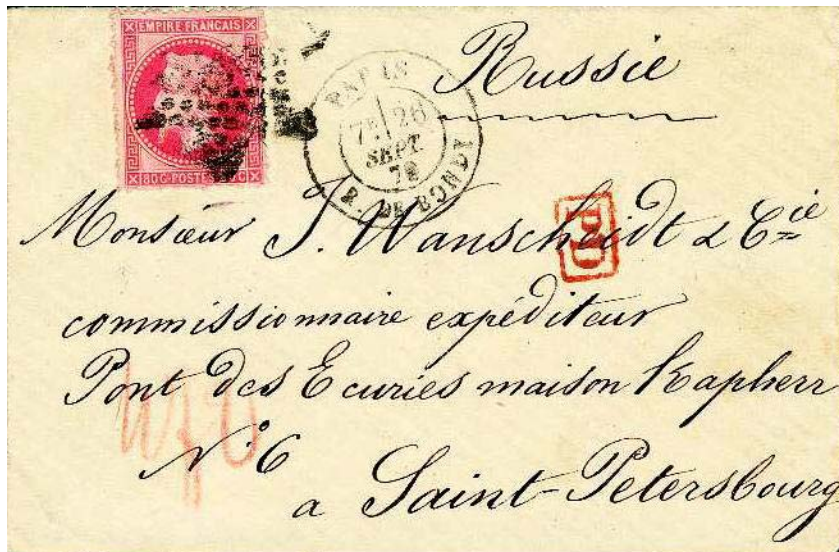 EMPIRE FRANCAIS
80 C POSTES C
PARIS
7E 26
SEPT.
72
R. DE BONDY
Russie
Monsieur J. Wanscheidt & Cie
PD
commissionnaire expéditeur
Pont des Ecuries maison Kapherr
N° 6
a Saint-Petersbourg